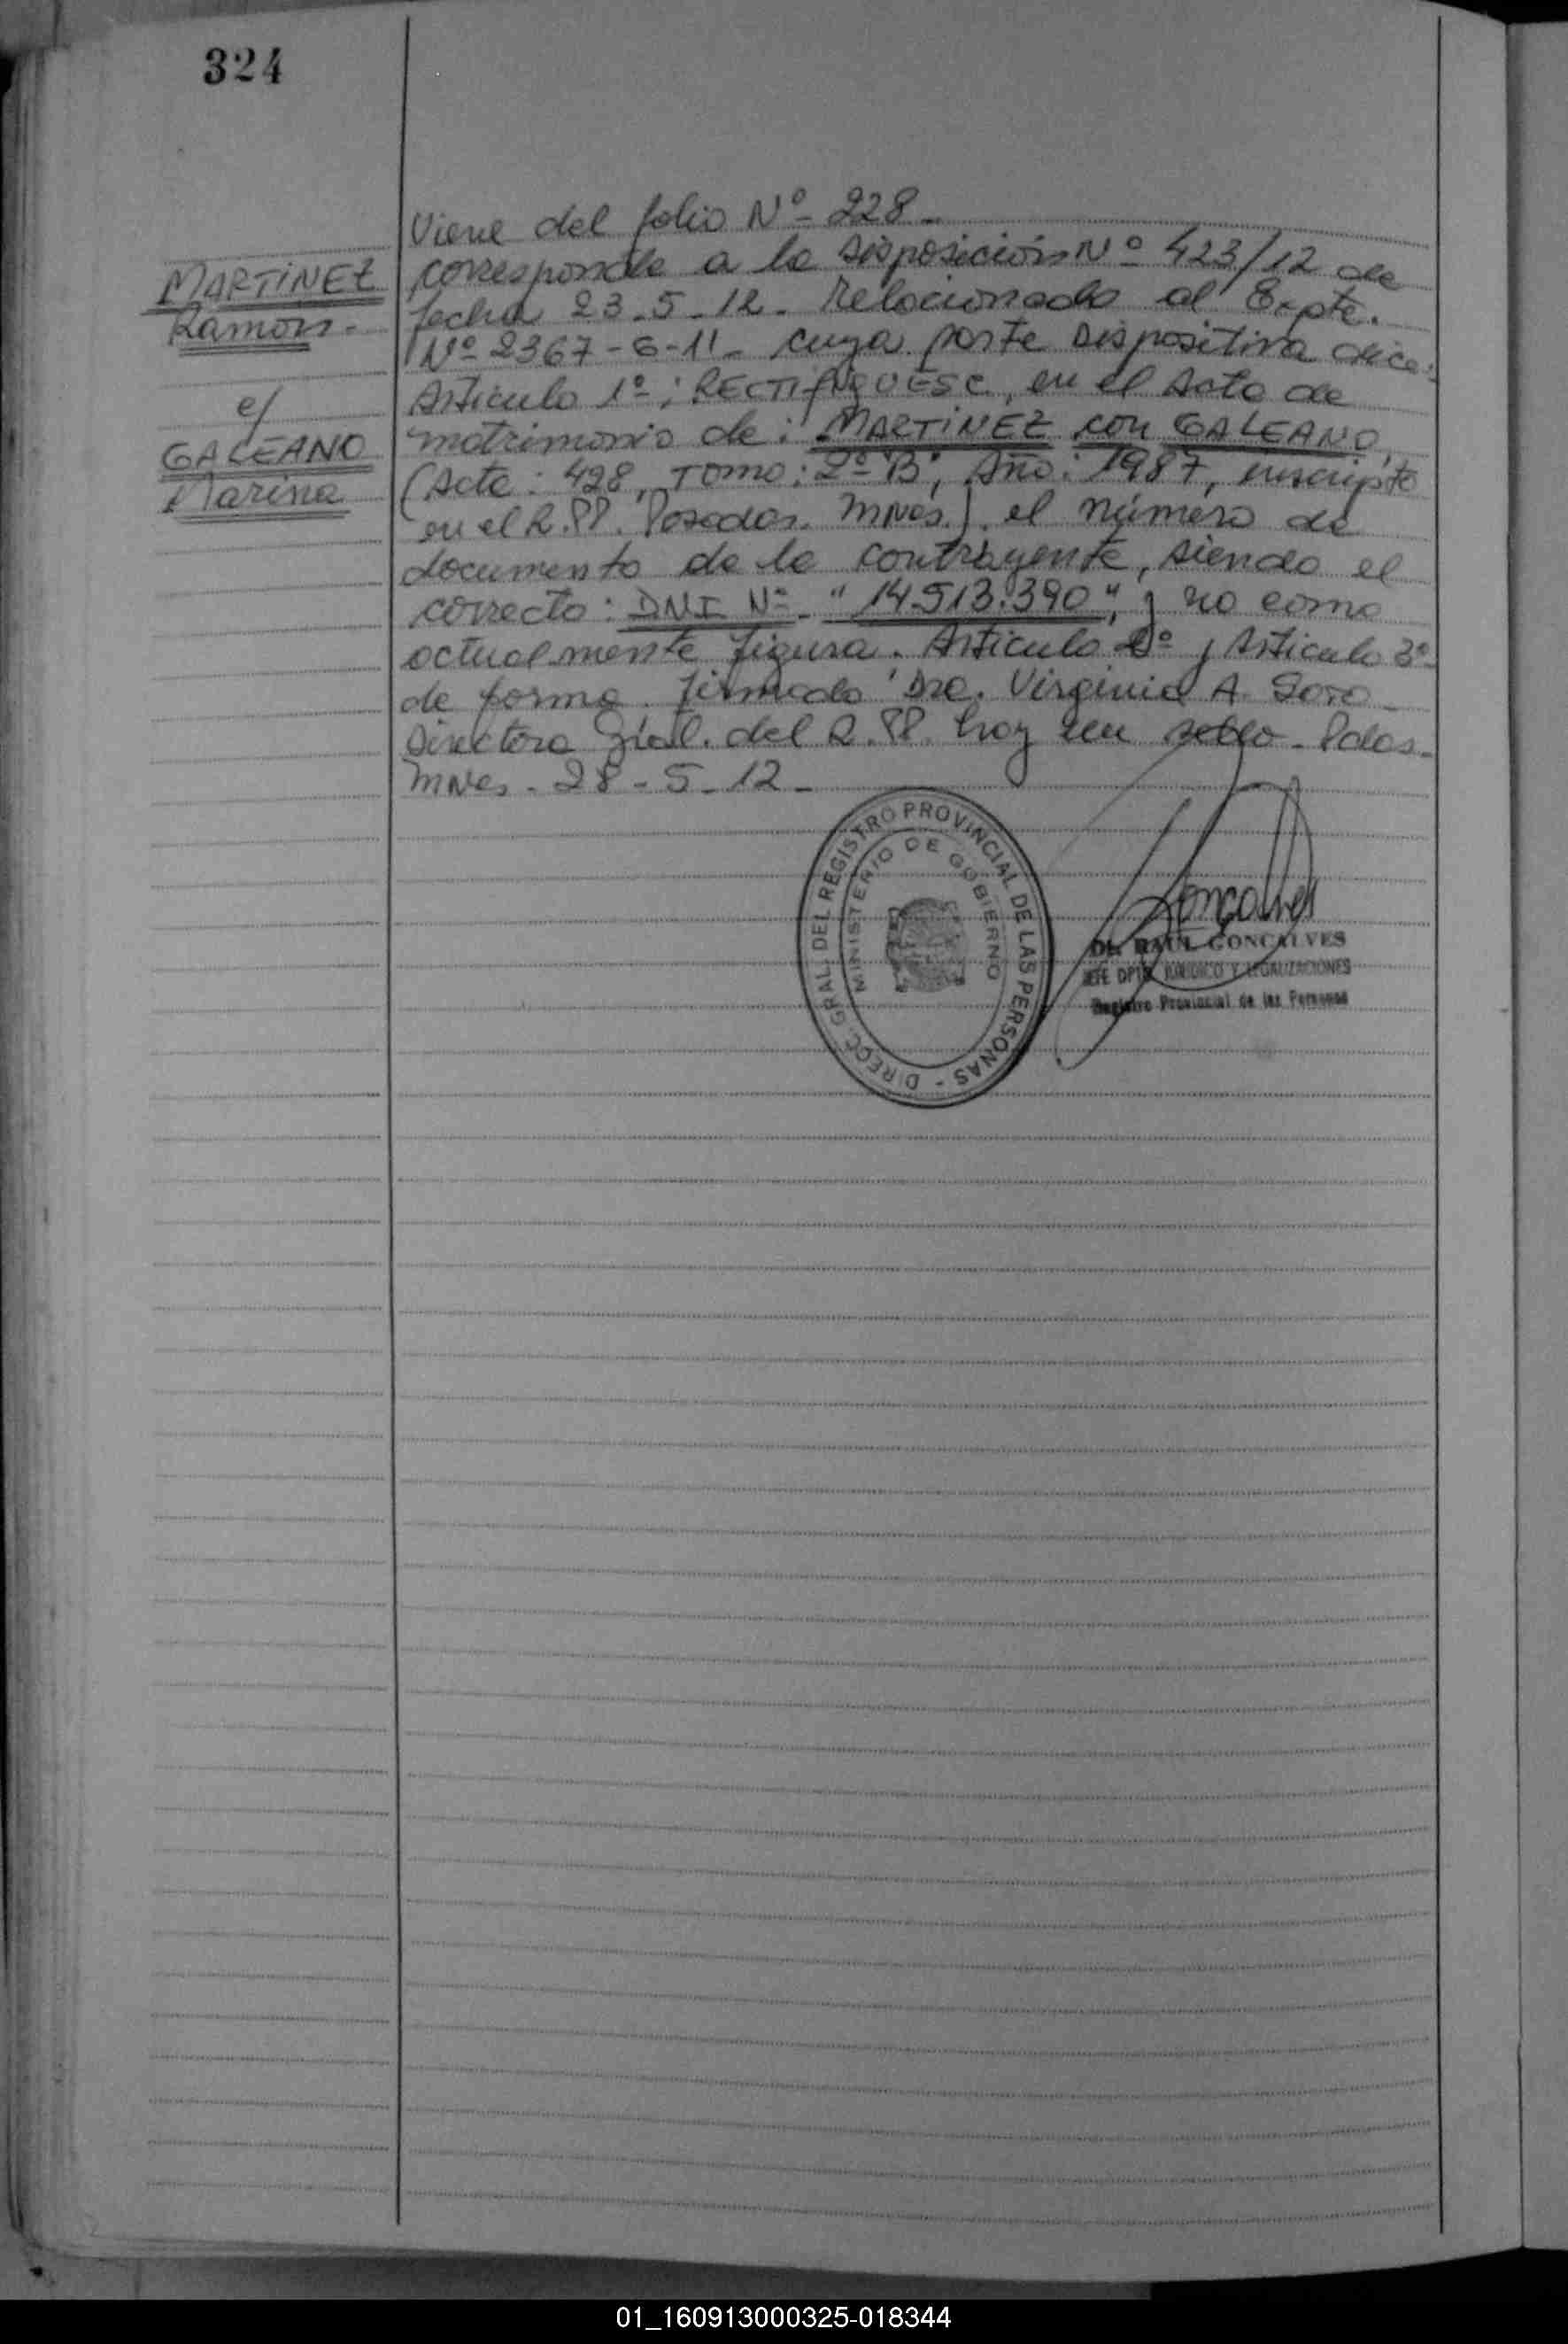 324
MARTINEZ
Ramon.-
c/
GALEANO
Marina
Viene del folio Nº- 228-
corresponde a la disposición Nº 423/12 de
fecha 23-5-12- Relacionado al Expte.
Nº 2367-G-11- cuya parte dispositiva dice:
Articulo 1º: RECTIFIQUESE, en el Acta de
matrimonio de: MARTINEZ con GALEANO,
(Acta: 428, Tomo: 2º "B", Año: 1987, inscripto
en el R.PP. Posadas. Mnes.). el número de
documento de la contrayente, siendo el
correcto: DNI Nº- "14.513.390", y no como
actualmente figura. Articulo 2º y Articulo 3º-
de forma. firmado Dra. Virginia A. Soto-
Directora Gral. del R.PP. hay un sello- Pdas-
Mnes- 28-5-12-
DIRECC. GRAL. DEL REGISTRO PROVINCIAL DE LAS PERSONAS -
MINISTERIO DE GOBIERNO
Goncalves
Dr. RAUL GONCALVES
JEFE DPTO. JURIDICO Y LEGALIZACIONES
Registro Provincial de las Personas
01_160913000325-018344